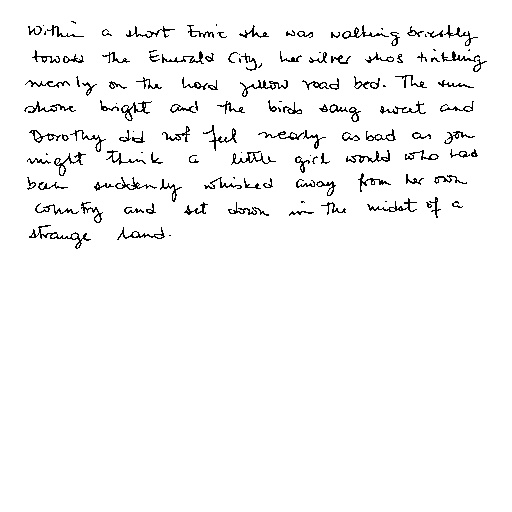 Within a short time she was walking briskly
toward the Emerald City, her silver shoes tinkling
merrily on the hard yellow road bed. The sun
shone bright and the birds sang sweet and
Dorothy did not feel nearly as bad as you
might think a little girl would who had
been suddenly whisked away from her own
country and set down in the midst of a
strange land.